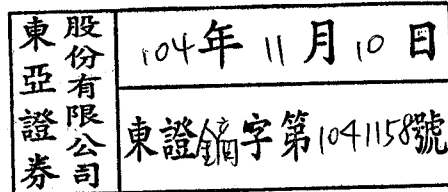 東亞證券
股份有限公司
104年11月10日
東證鏋字第1041158號